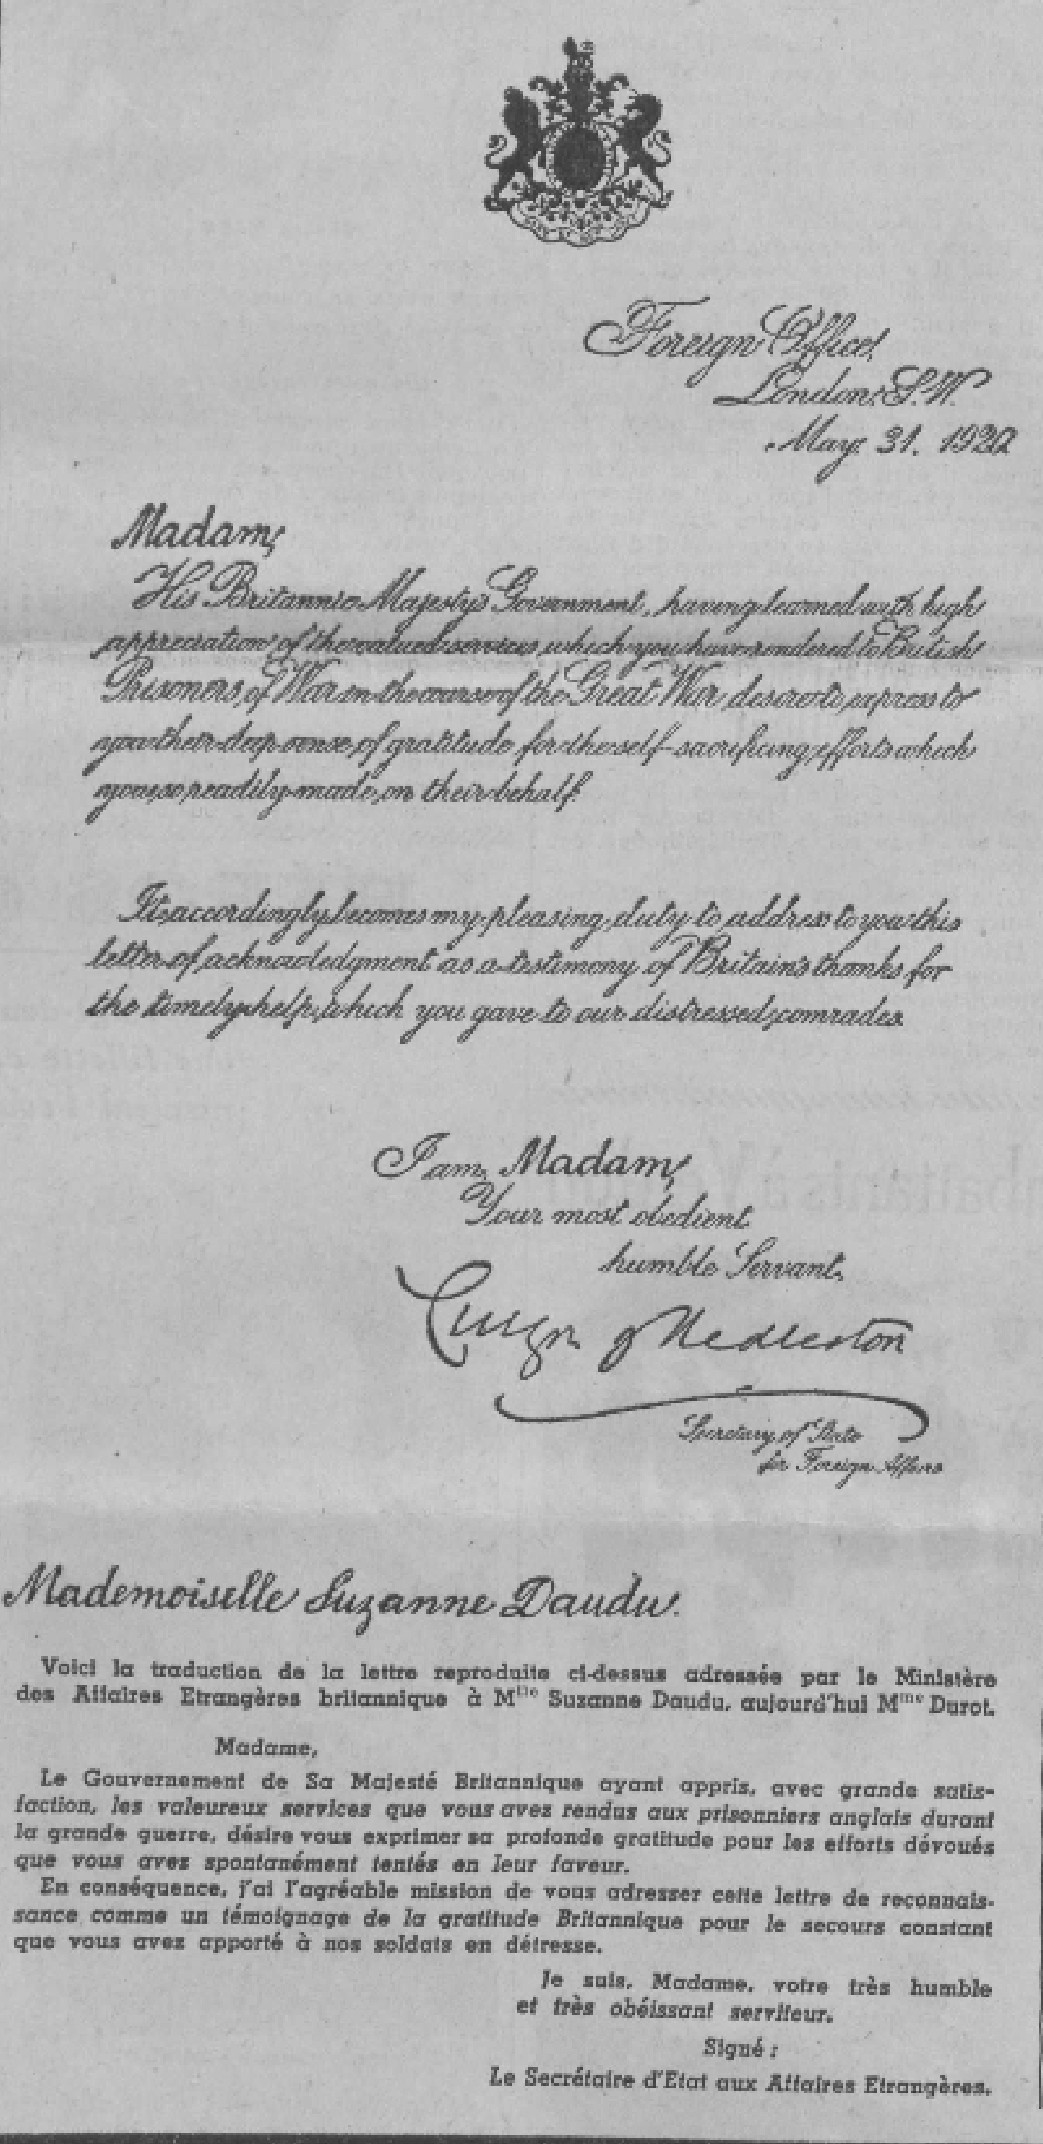 Foreign Office,
London. S.W.
May 31. 1920
Madam,
His Britannic Majesty's Government, having learned with high
appreciation of the valued services which you have rendered to British
Prisoners of War in the course of the Great War desire to express to
you their deep sense of gratitude for the self-sacrificing efforts which
you so readily made on their behalf.
It accordingly becomes my pleasing duty to address to you this
letter of acknowledgment as a testimony of Britain's thanks for
the timely help, which you gave to our distressed comrades.
I am, Madam,
Your most obedient
humble Servant,
Curzon of Kedleston
Secretary of State
for Foreign Affairs
Mademoiselle Suzanne Daudu.
Voici la traduction de la lettre reproduite ci-dessus adressée par le Ministère
des Affaires Etrangères britannique à Mlle Suzanne Daudu, aujourd'hui Mme Durot.
Madame,
Le Gouvernement de Sa Majesté Britannique ayant appris, avec grande satis-
faction, les valeureux services que vous aves rendus aux prisonniers anglais durant
la grande guerre, désire vous exprimer sa profonde gratitude pour les efforts dévoués
que vous aves spontanément tentés en leur faveur.
En conséquence, j'ai l'agréable mission de vous adresser cette lettre de reconnais-
sance comme un témoignage de la gratitude Britannique pour le secours constant
que vous avez apporté à nos soldats en détresse.
Je suis, Madame, votre très humble
et très obéissant serviteur.
Signé :
Le Secrétaire d'Etat aux Affaires Etrangères.